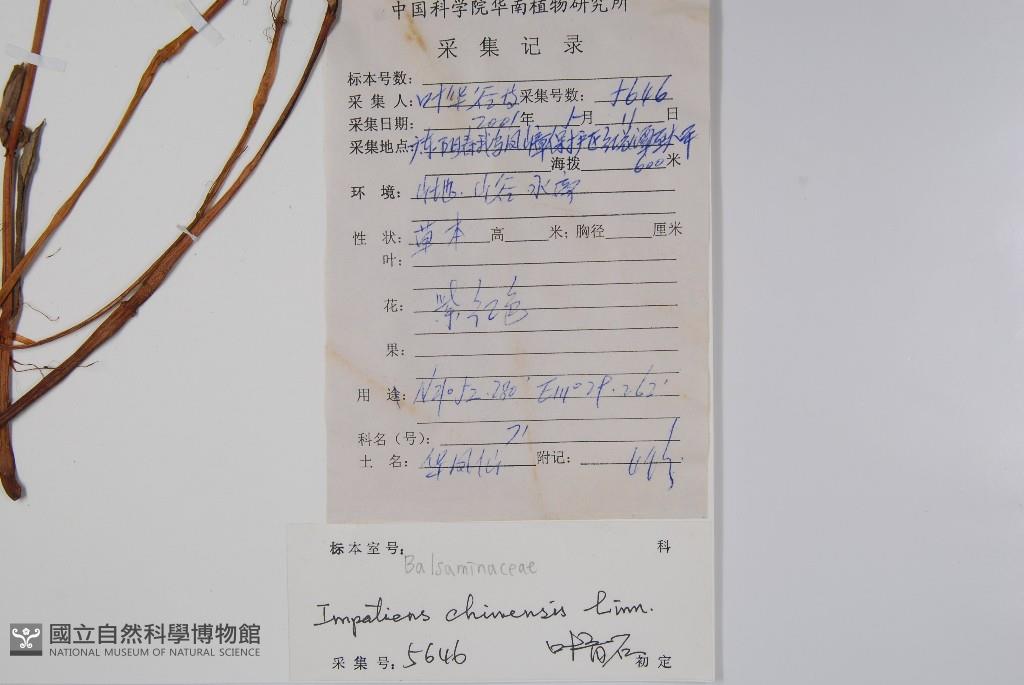 中国科学院华南植物研究所
采集记录
标本号数:
采集人: 叶华谷 采集号数: 5646
采集日期: 2001年 月 11日
采集地点: 广东阳春
海拨 600米
环境: 山地.山谷水旁
性状: 草本 高 米; 胸径 厘米
叶:
花: 紫红色
果:
用途: N21°52.280' E111°29.262'
科名(号): 71
土名: 华凤仙 附记:
标本室号: 科
Balsaminaceae
Impatiens chinensis Linn.
采集号: 5646 初定
國立自然科學博物館
NATIONAL MUSEUM OF NATURAL SCIENCE